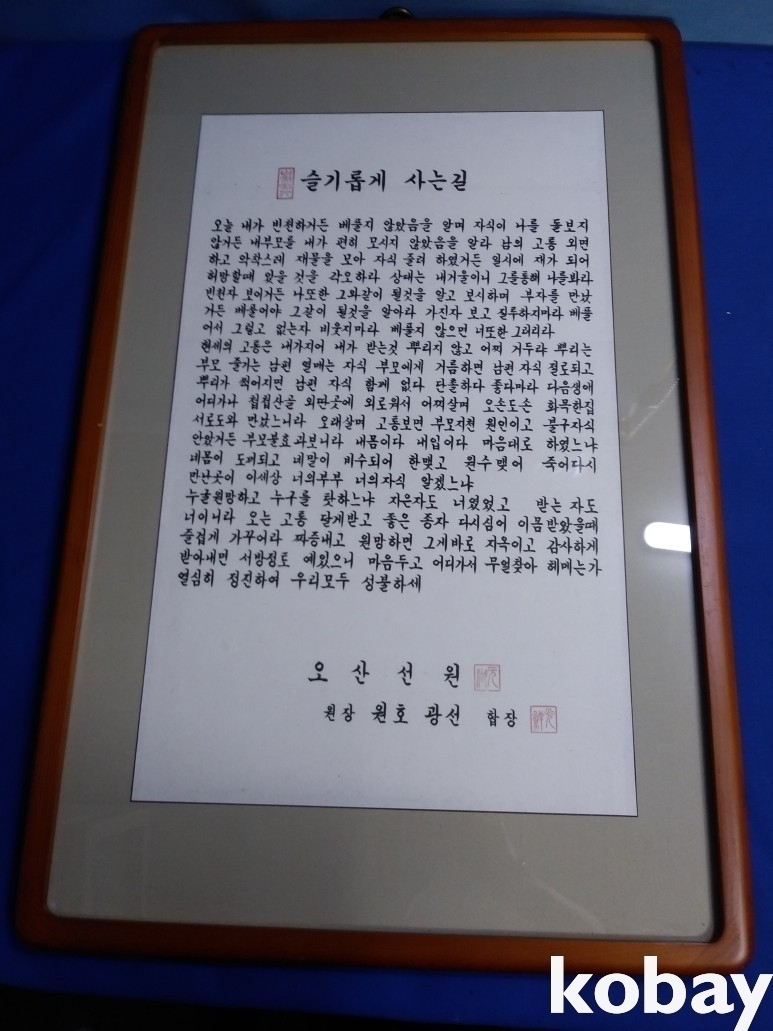 슬기롭게 사는길
오늘 내가 빈천하거든 베풀지 않았음을 알며 자식이 나를 돌보지
않거든 내부모를 내가 편히 모시지 않았음을 알라 남의 고통 외면
하고 악착스레 재물을 모아 자식 줄려 하였거든 일시에 재가 되어
허망할때 있을 것을 각오하라 상대는 내거울이니 그를통해 나를봐라
빈천자 보이거든 나또한 그와같이 될것을 알고 보시하며 부자를 만났
거든 베풀어야 그같이 될것을 알아라 가진자 보고 질투하지마라 베풀
어서 그렇고 없는자 비웃지마라 베풀지 않으면 너또한 그러리라
현세의 고통은 내가지어 내가 받는것 뿌리지 않고 어찌 거두랴 뿌리는
부모 줄기는 남편 열매는 자식 부모에게 거름하면 남편 자식 절로되고
뿌리가 썩어지면 남편 자식 함께 없다 단촐하다 좋다마라 다음생에
어디가나 첩첩산골 외딴곳에 외로워서 어찌살며 오손도손 화목한집
서로도와 만났느니라 오래살며 고통보면 부모지천 원인이고 불구자식
안았거든 부모불효과보니라 내몸이다 내입이다 마음대로 하였느냐
네몸이 도끼되고 네말이 비수되어 한맺고 원수 맺어 죽어다시
만난곳이 이세상 너의부부 너의자식 알겠느냐
누굴원망하고 누구를 탓하느냐 지은자도 너였었고 받는 자도
너이니라 오는 고통 달게받고 좋은 종자 다시심어 이몸 받았을때
즐겁게 가꾸어라 짜증내고 원망하면 그게바로 지옥이고 감사하게
받아내면 서방정토 예있으니 마음두고 어디가서 무얼찾아 헤메는가
열심히 정진하여 우리모두 성불하세
오 산 선 원
원장 원호 광선 합장
kobay